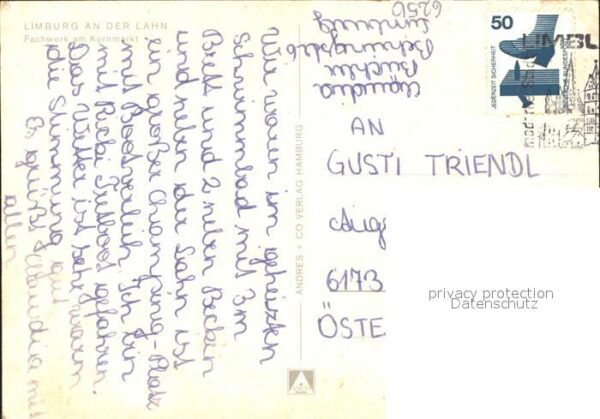 LIMBURG AN DER LAHN
Fachwerk am Kornmarkt
Wir waren im geheizten
Schwimmbad mit 3m
Brett und 2 neben Becken
und neben der Lahn ist
ein großer Champing-Platz
mit Bootsverleih. Ich bin
mit Ricki Tretboot gefahren.
Das Wetter ist sehr warm
die Stimmung gut
Es grüßt Claudia mit
allen
ANDRES + CO VERLAG HAMBURG
Claudia
Büchler
6250 Limburg
50
JEDERZEIT SICHERHEIT
LIMBU
AN
GUSTI TRIENDL
Aug
6173
ÖSTE
privacy protection
Datenschutz